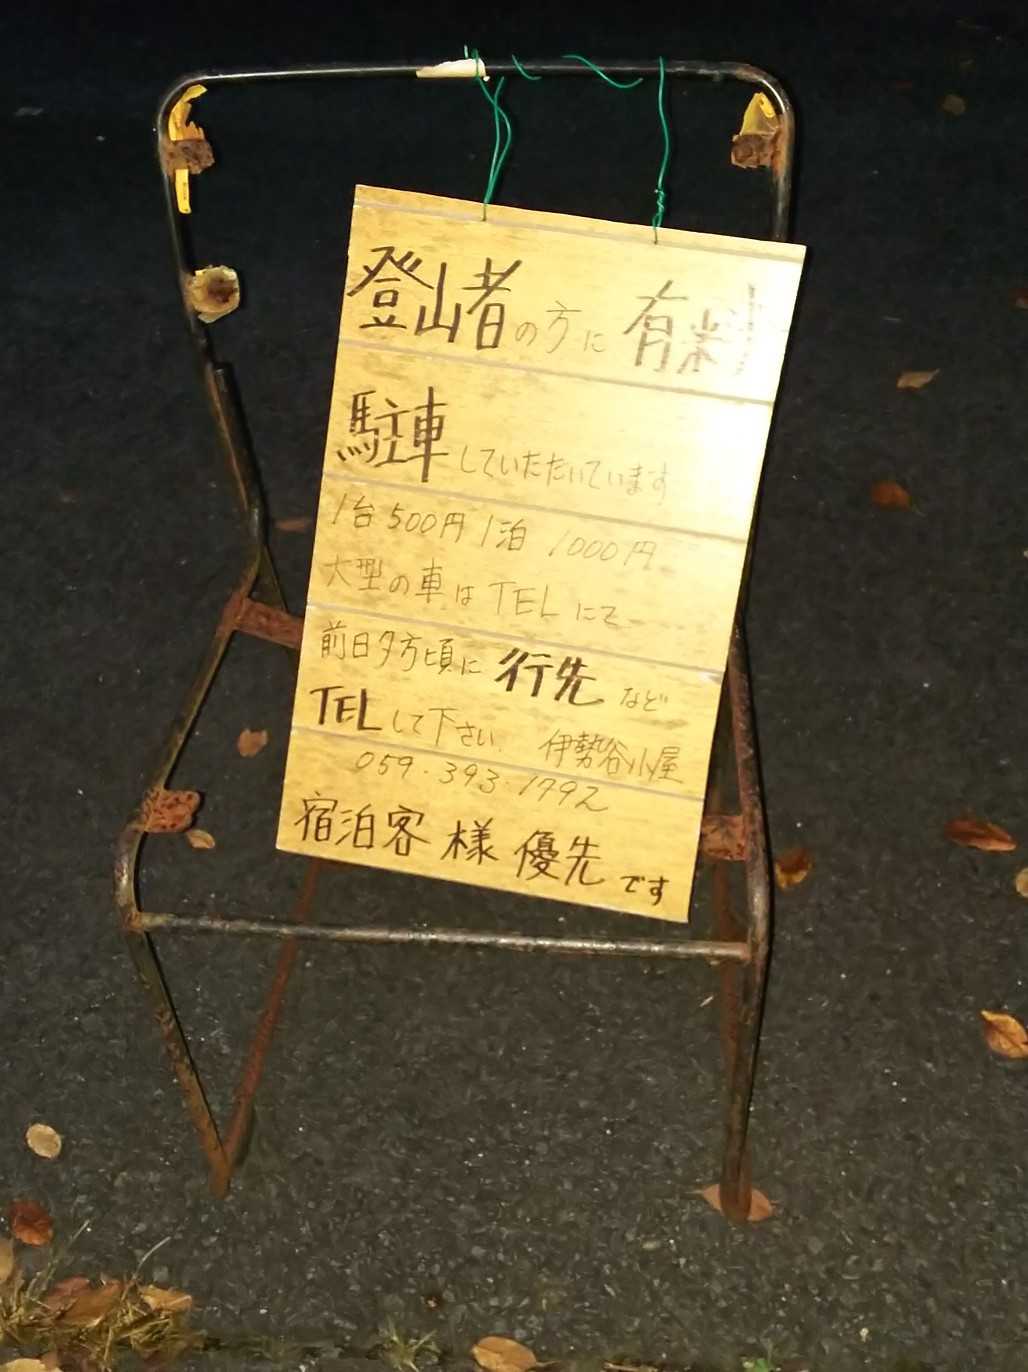 登山者の方に有料
駐車していただいています
1台500円1泊 1000円
大型の車は TELにて
前日夕方頃に 行先 など
TELして下さい. 伊勢谷小屋
059・393・1792
宿泊客様優先です